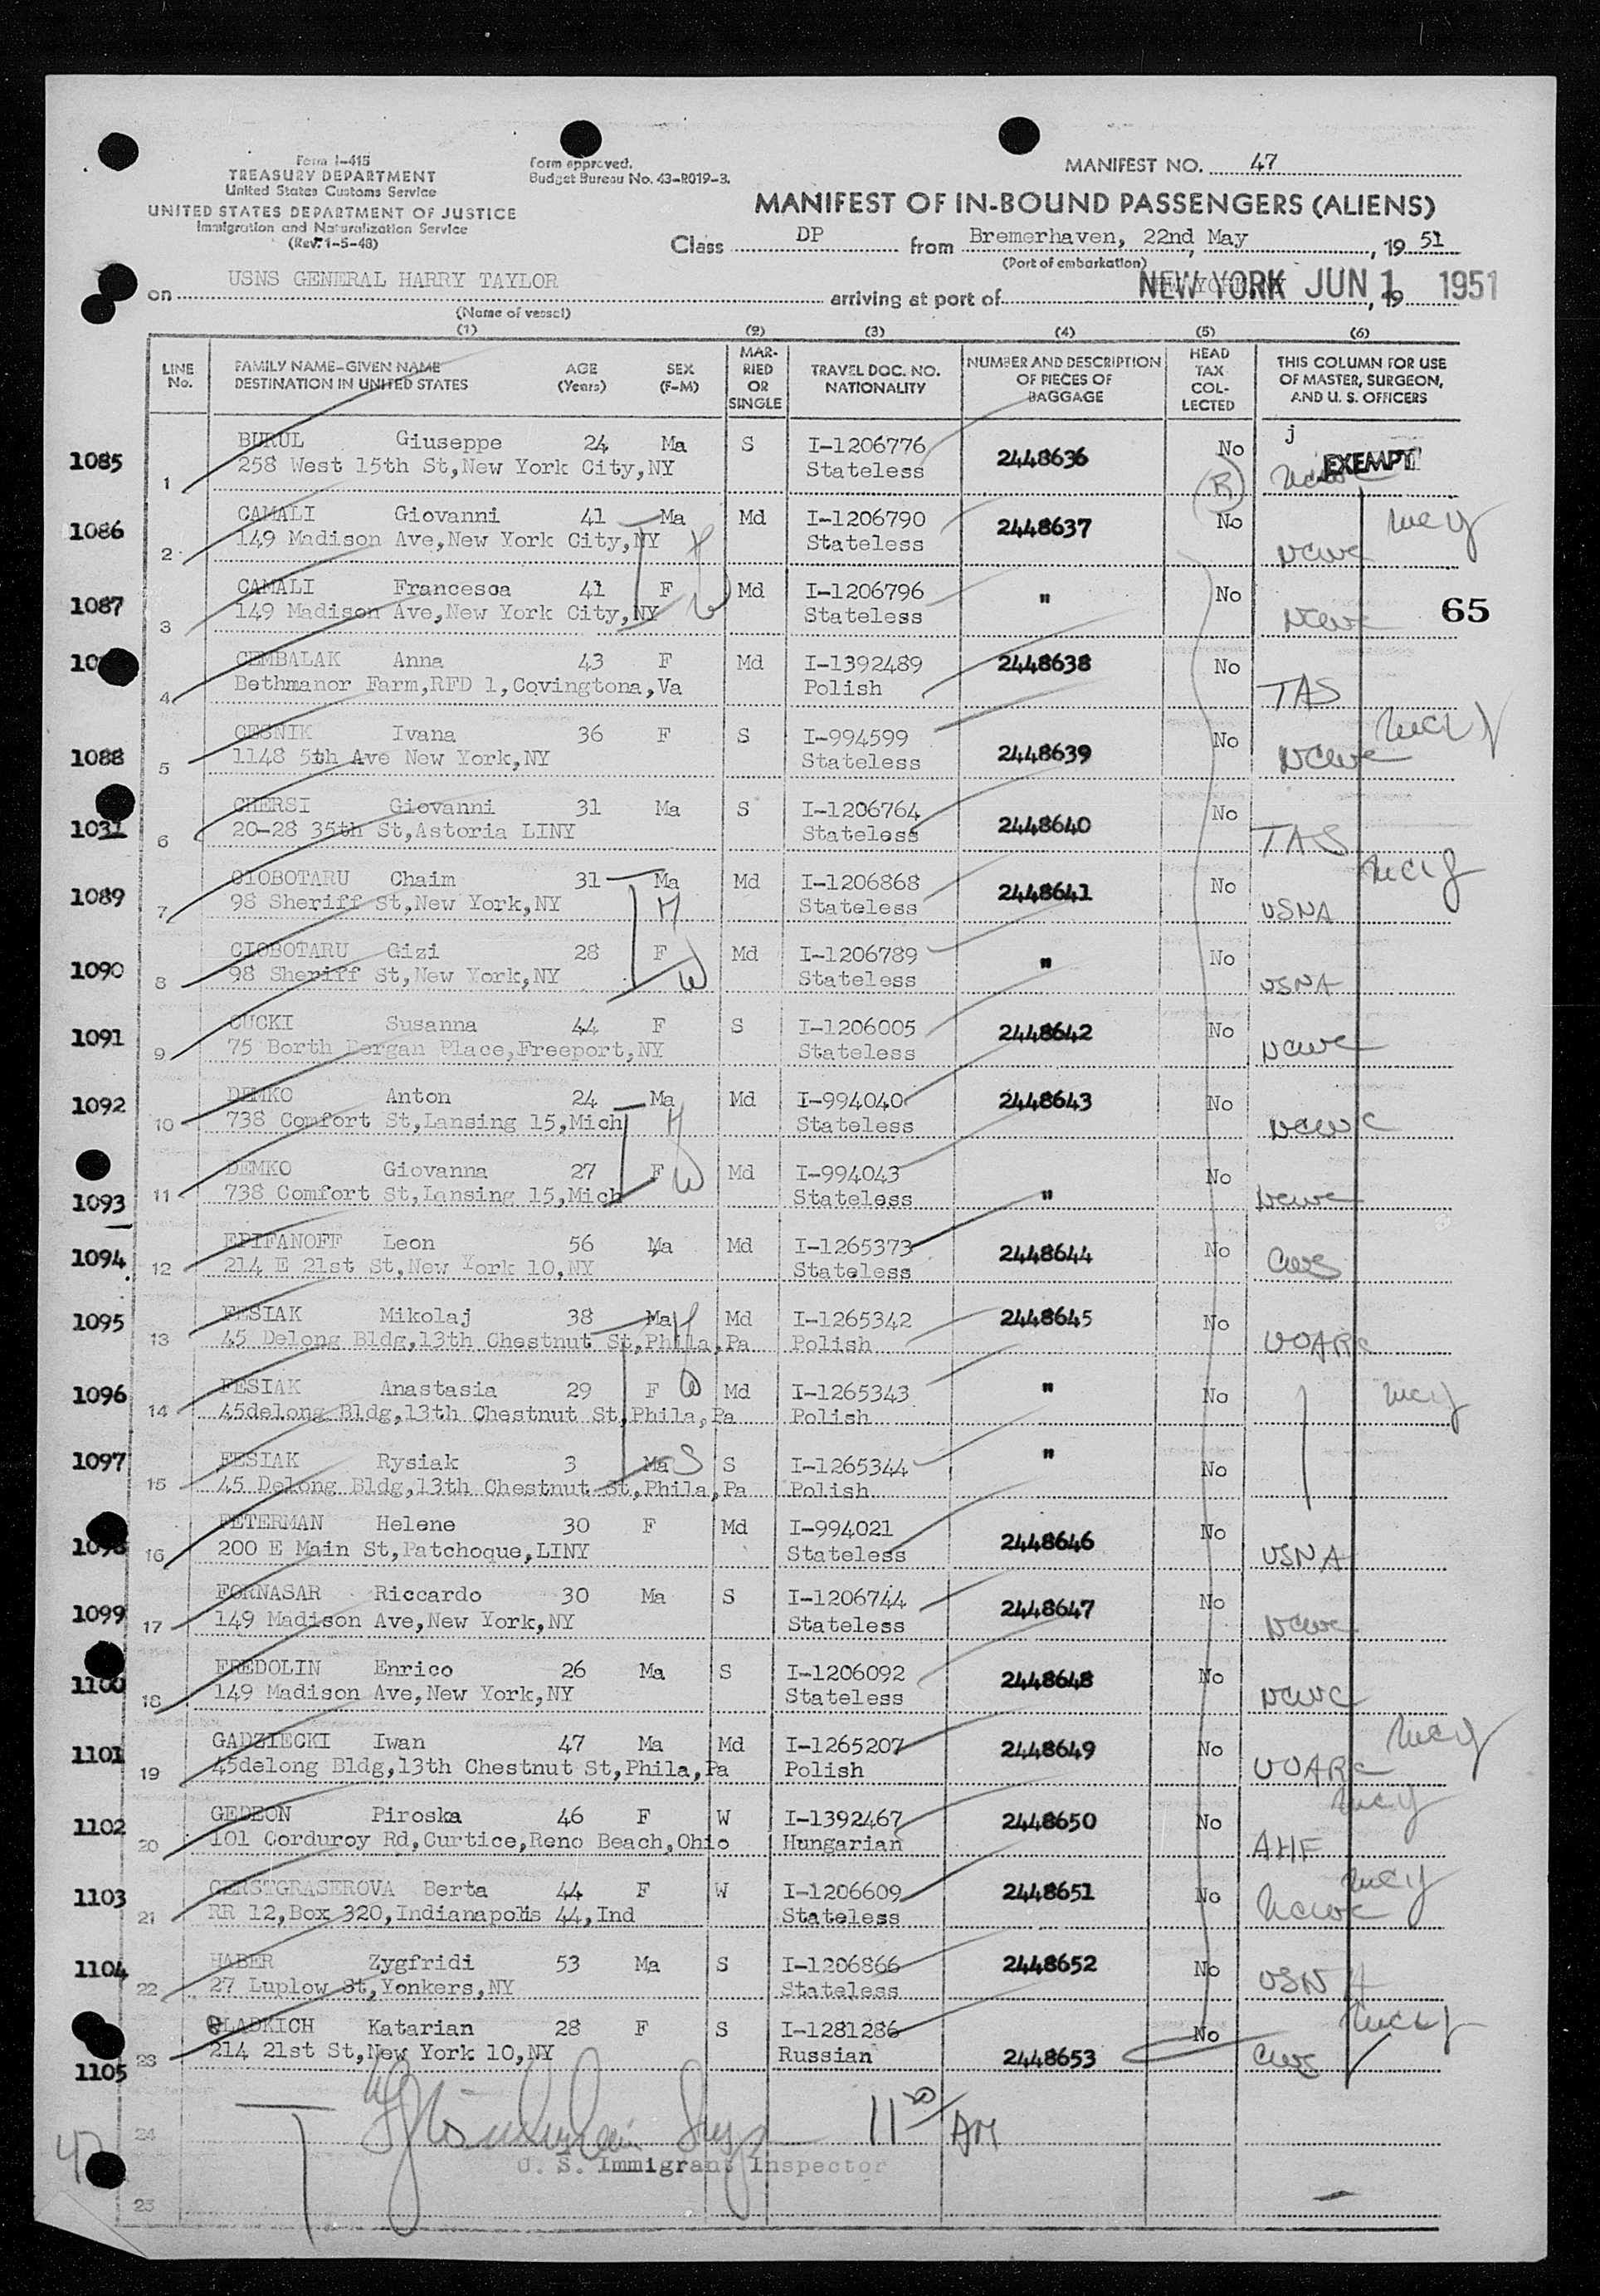 Form I-415
TREASURY DEPARTMENT
United States Customs Service
UNITED STATES DEPARTMENT OF JUSTICE
Immigration and Naturalization Service
(Rev. 1-5-48)
Form approved.
Budget Bureau No. 43-R019-3.
MANIFEST NO. 47
MANIFEST OF IN-BOUND PASSENGERS (ALIENS)
Class DP from Bremerhaven, 22nd May, 19 51
(Port of embarkation)
on USNS GENERAL HARRY TAYLOR arriving at port of NEW YORK JUN 1 1951, 19
(Name of vessel)
(1) (2) (3) (4) (5) (6)
LINE No. FAMILY NAME-GIVEN NAME DESTINATION IN UNITED STATES AGE (Years) SEX (F-M) MARRIED OR SINGLE TRAVEL DOC. NO. NATIONALITY NUMBER AND DESCRIPTION OF PIECES OF BAGGAGE HEAD TAX COLLECTED THIS COLUMN FOR USE OF MASTER, SURGEON, AND U. S. OFFICERS
1085 1 BURUL Giuseppe 24 Ma S I-1206776 2448636 No j
258 West 15th St,New York City,NY Stateless R EXEMPT
1086 2 CAMALI Giovanni 41 Ma Md I-1206790 2448637 No
149 Madison Ave,New York City,NY H Stateless NCWC
1087 3 CAMALI Francesca 41 F Md I-1206796 " No 65
149 Madison Ave,New York City,NY W Stateless NCWC
4 CEMBALAK Anna 43 F Md I-1392489 2448638 No
Bethmanor Farm,RFD 1,Covingtona,Va Polish TAS
1088 5 CESNIK Ivana 36 F S I-994599 2448639 No
1148 5th Ave New York,NY Stateless NCWC
1031 6 CHERSI Giovanni 31 Ma S I-1206764 2448640 No
20-28 35th St,Astoria LINY Stateless TAS
1089 7 CIOBOTARU Chaim 31 Ma Md I-1206868 2448641 No
98 Sheriff St,New York,NY H Stateless USNA
1090 8 CIOBOTARU Gizi 28 F Md I-1206789 " No
98 Sheriff St,New York,NY W Stateless USNA
1091 9 CUCKI Susanna 44 F S I-1206005 2448642 No
75 Borth Bergan Place,Freeport,NY Stateless NCWC
1092 10 DEMKO Anton 24 Ma Md I-994040 2448643 No
738 Comfort St,Lansing 15,Mich H Stateless NCWC
1093 11 DEMKO Giovanna 27 F W Md I-994043 " No
738 Comfort St,Lansing 15,Mich Stateless NCWC
1094 12 EPIFANOFF Leon 56 Ma Md I-1265373 2448644 No
214 E 21st St,New York 10,NY Stateless CWS
1095 13 FESIAK Mikolaj 38 Ma H Md I-1265342 2448645 No
45 Delong Bldg,13th Chestnut St,Phila,Pa Polish UUARC
1096 14 FESIAK Anastasia 29 F W Md I-1265343 " No
45delong Bldg,13th Chestnut St,Phila,Pa Polish
1097 15 FESIAK Rysiak 3 Ma S S I-1265344 " No
45 Delong Bldg,13th Chestnut St,Phila,Pa Polish
1098 16 FETERMAN Helene 30 F Md I-994021 2448646 No
200 E Main St,Patchoque,LINY Stateless USNA
1099 17 FORNASAR Riccardo 30 Ma S I-1206744 2448647 No
149 Madison Ave,New York,NY Stateless NCWC
1100 18 FREDOLIN Enrico 26 Ma S I-1206092 2448648 No
149 Madison Ave,New York,NY Stateless NCWC
1101 19 GADZIECKI Iwan 47 Ma Md I-1265207 2448649 No
45delong Bldg,13th Chestnut St,Phila,Pa Polish UUARC
1102 20 GEDEON Piroska 46 F W I-1392467 2448650 No
101 Corduroy Rd,Curtice,Reno Beach,Ohio Hungarian AHF
1103 21 GERSTGRASEROVA Berta 44 F W I-1206609 2448651 No
RR 12,Box 320,Indianapolis 44,Ind Stateless NCWC
1104 22 HABER Zygfridi 53 Ma S I-1206866 2448652 No
27 Luplow St,Yonkers,NY Stateless USNA
1105 23 LADKICH Katarian 28 F S I-1281286 2448653 No
214 21st St,New York 10,NY Russian CWS
24 11 20/AM
U. S. Immigrant Inspector
25
47